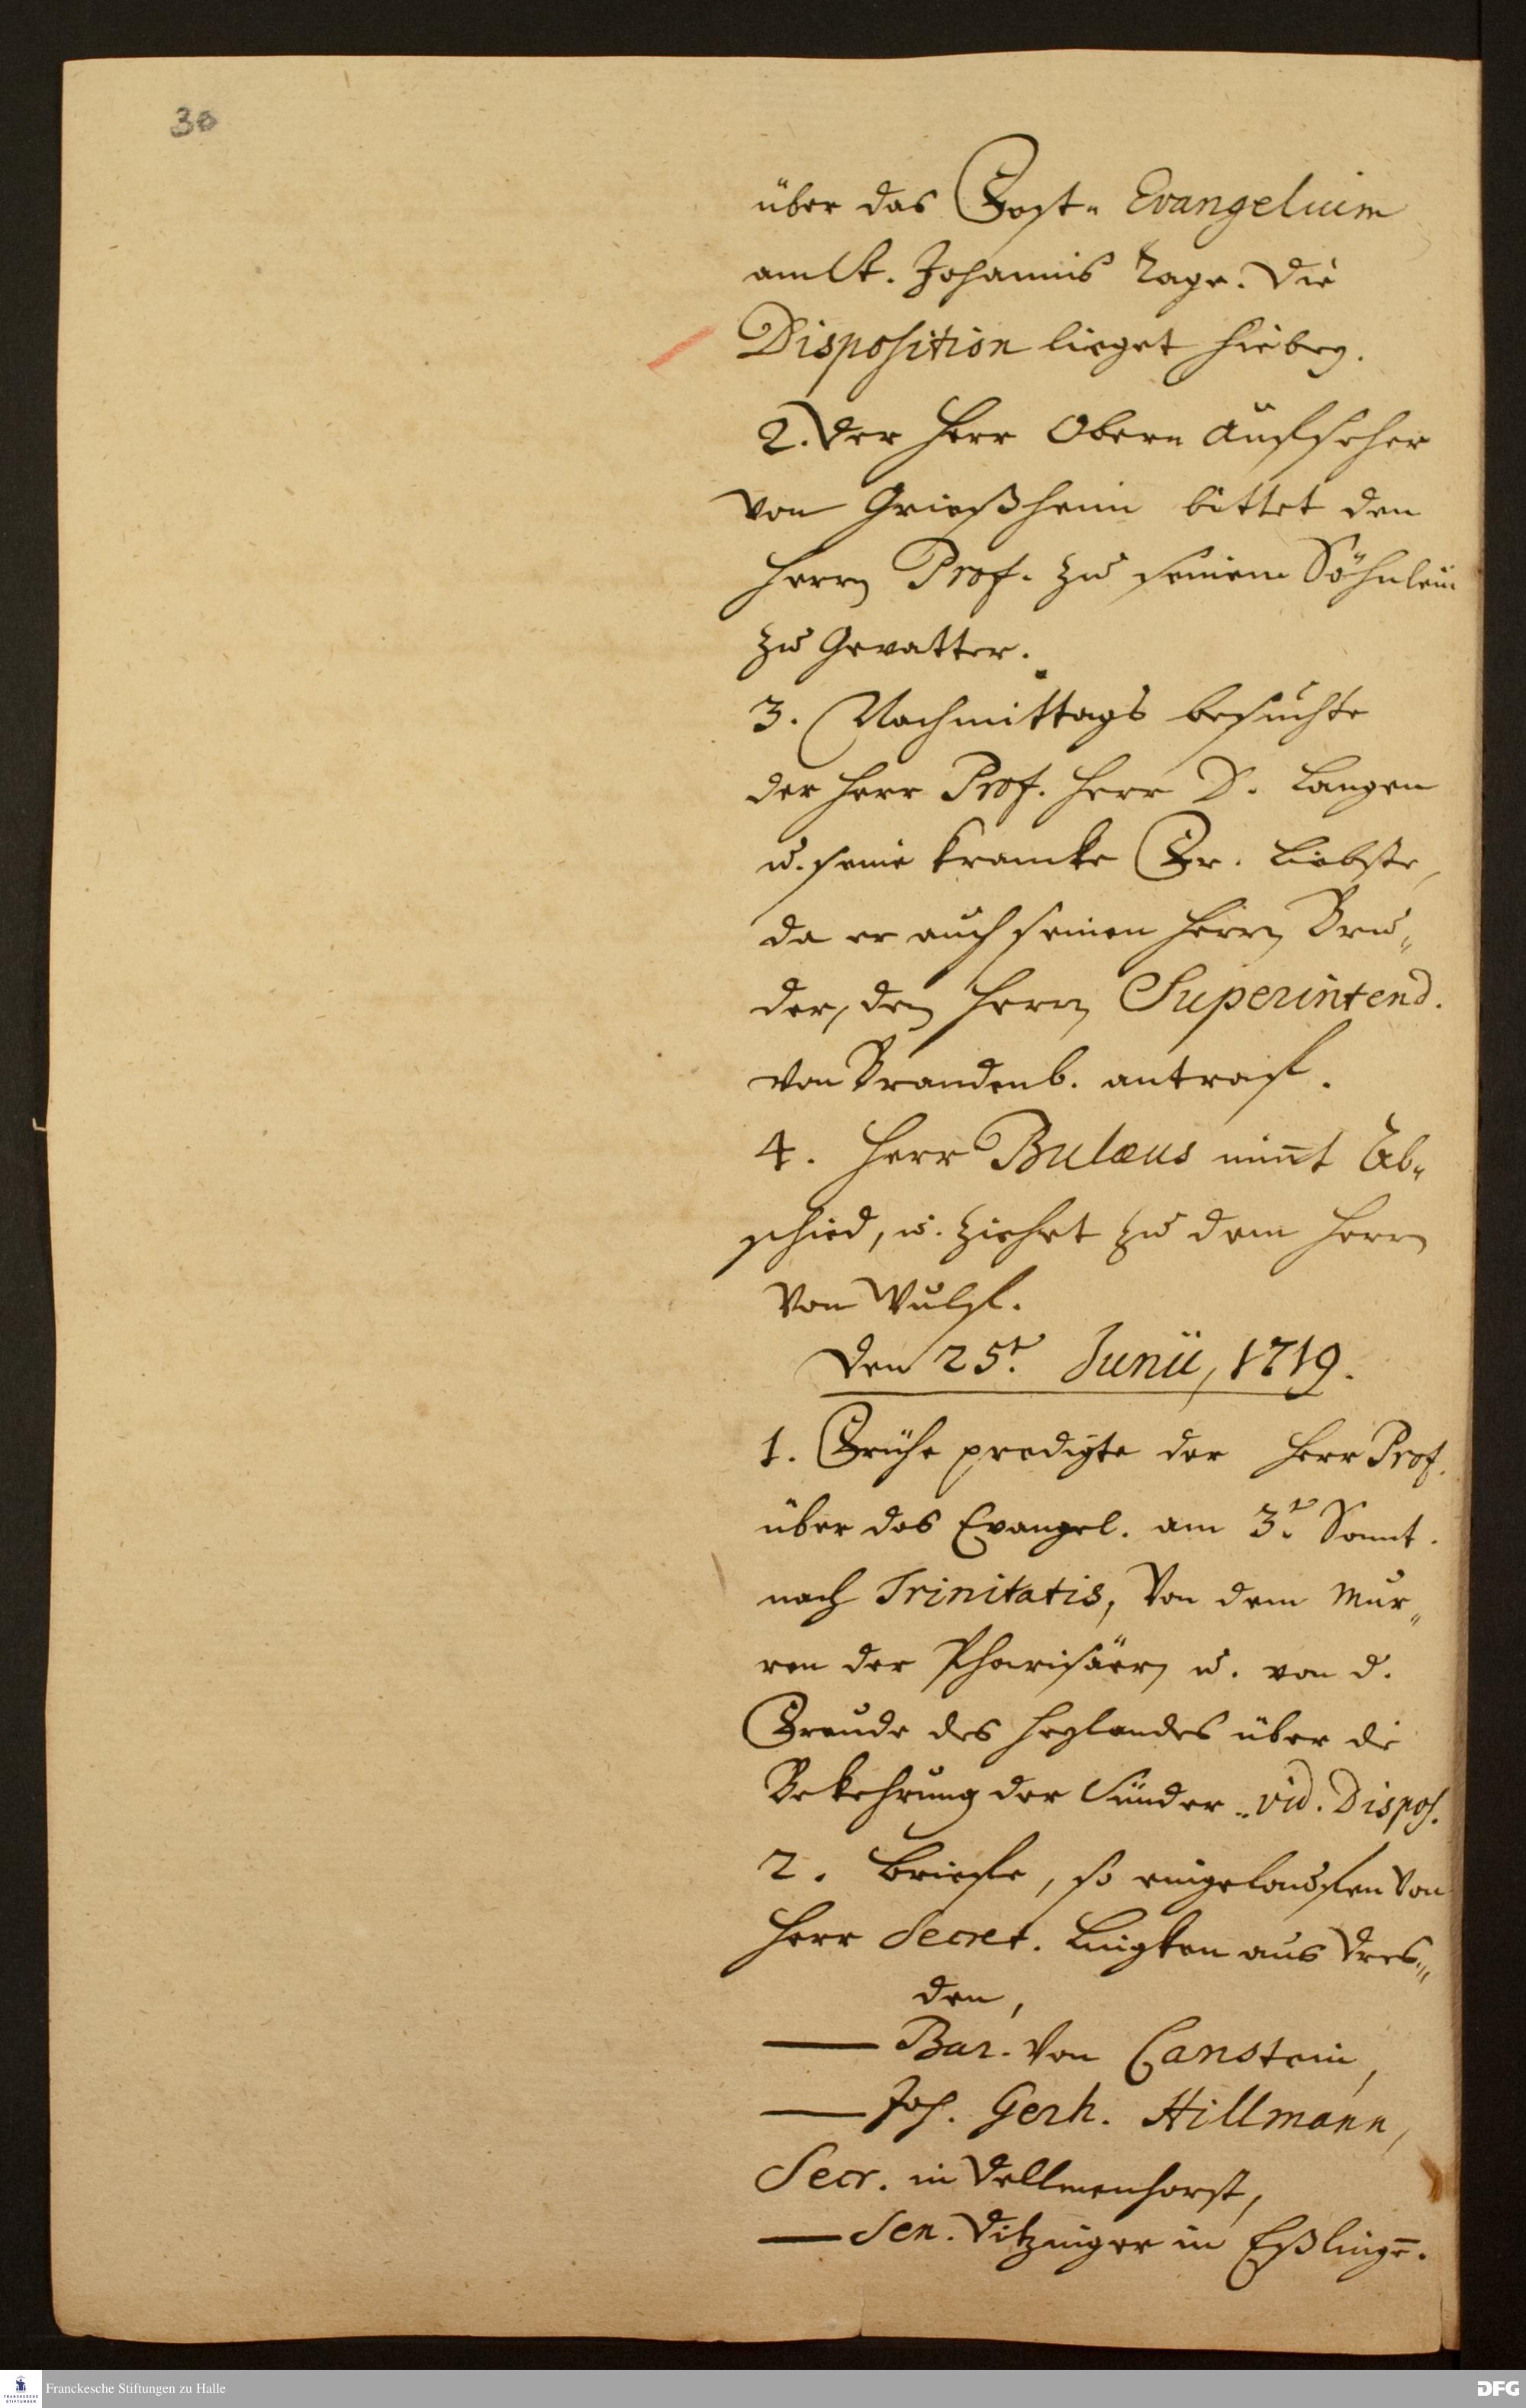 30
über das Fest- Evangelium
am St. Johannis Tage. Die
Disposition lieget hiebey.
2. Der Herr Ober- Auffseher
von Grießheim bittet den
Herrn Prof. zu seinem Söhnlein
zu Gevatter.
3. Nachmittags besuchte
der Herr Prof. Herr D. Langen
u. seine krancke Fr. Liebste,
da er auch seinen Herrn Bru-
der, den Herrn Superintend.
von Brandenb. antraf.
4. Herr Bulæus nim̅t Ab-
schied, u. ziehet zu dem Herrn
von Wulf.
Den 25t. Junii, 1719.
1. Frühe predigte der Herr Prof.
über das Evangel. am 3t. Sonnt.
nach Trinitatis, von dem Mur-
ren der Pharisäer, u. von d.
Freude des Heylandes über die
Bekehrung der Sünder. vid. Dispos.
2. Briefe, so eingelauffen von
Herr Secret. Lingken aus Dres-
den,
— Bar. von Canstein,
— Joh. Gerh. Hillmann,
Secr. in Dellmenhorst,
— Sen. Ditzinger in Eßlinge̅.
Franckesche Stiftungen zu Halle
DFG